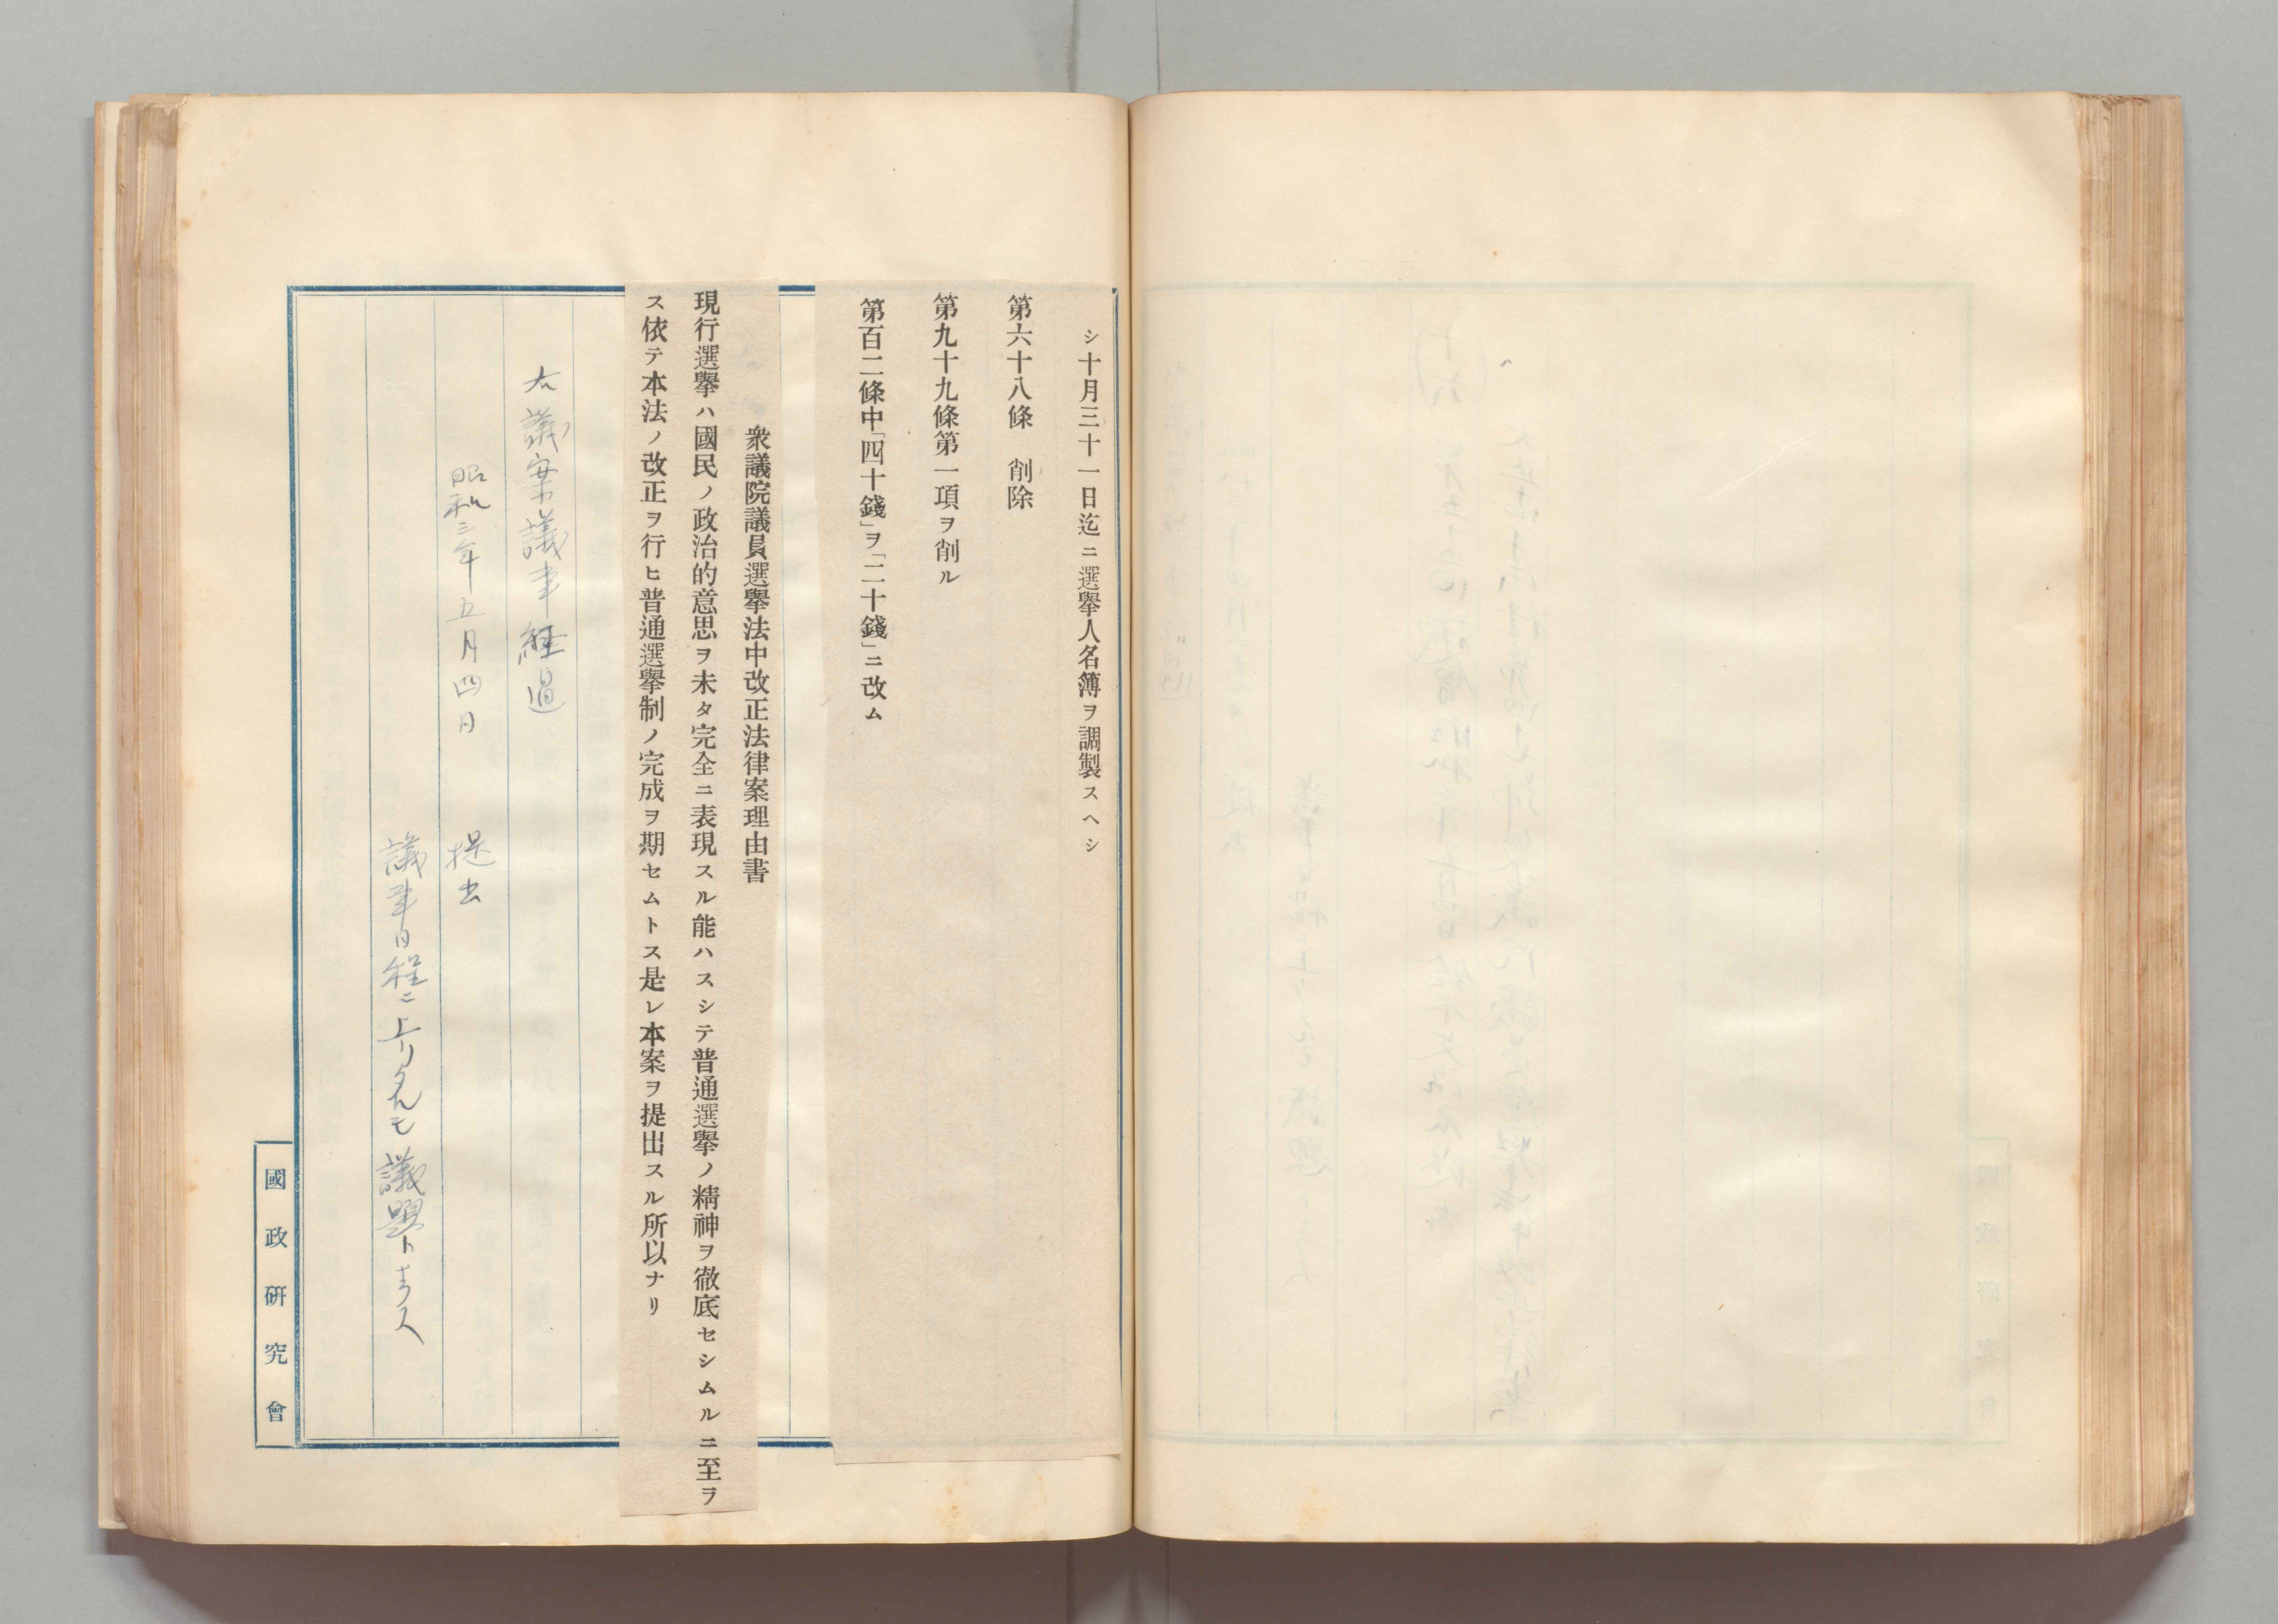 シ十月三十一日迄ニ選擧人名簿ヲ調製スヘシ
第六十八條　削除
第九十九條第一項ヲ削ル
第百二條中「四十錢」ヲ「二十錢」ニ改ム
衆議院議員選擧法中改正法律案理由書
現行選擧ハ國民ノ政治的意思ヲ未タ完全ニ表現スル能ハスシテ普通選擧ノ精神ヲ徹底セシムルニ至ラ
ス依テ本法ノ改正ヲ行ヒ普通選擧制ノ完成ヲ期セムトス是レ本案ヲ提出スル所以ナリ
右議案議事経過
昭和三年五月四日　提出
議事日程ニ上リタルモ議題トナラス
國政研究會